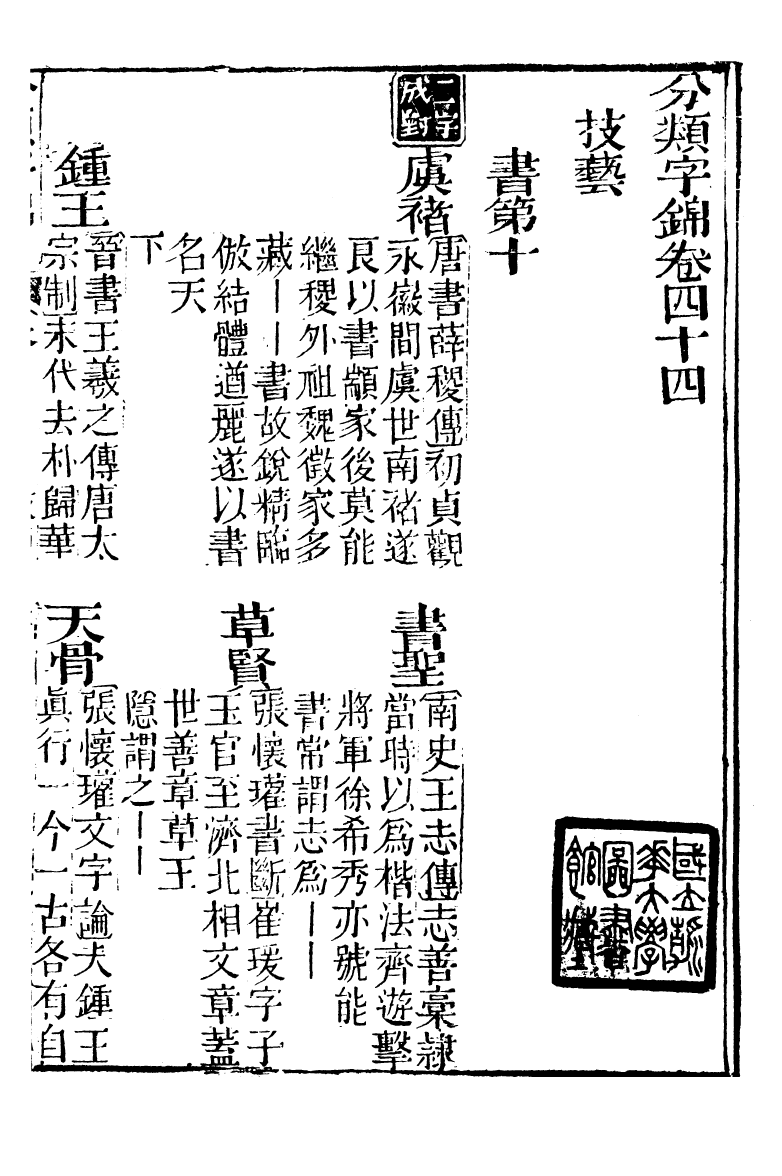 分類字錦卷四十四
技藝
書第十
二字
成對
虞褚
唐書薛稷傳初貞觀
永徽間虞世南褚遂
良以書顓家後莫能
繼稷外祖魏徵家多
藏丨丨書故銳精臨
倣結體遒麗遂以書
名天
下
書聖
南史王志傳志善稾隷
當時以爲楷法齊遊擊
將軍徐希秀亦號能
書常謂志爲丨丨
草賢
張懷瓘書斷崔瑗字子
玉官至濟北相文章蓋
世善章草王
隱謂之丨丨
鍾王
晉書王羲之傳唐太
宗制末代去朴歸華
天骨
張懷瓘文字論夫鍾王
眞行一今一古各有自
國立清
華大學
圖書
館藏